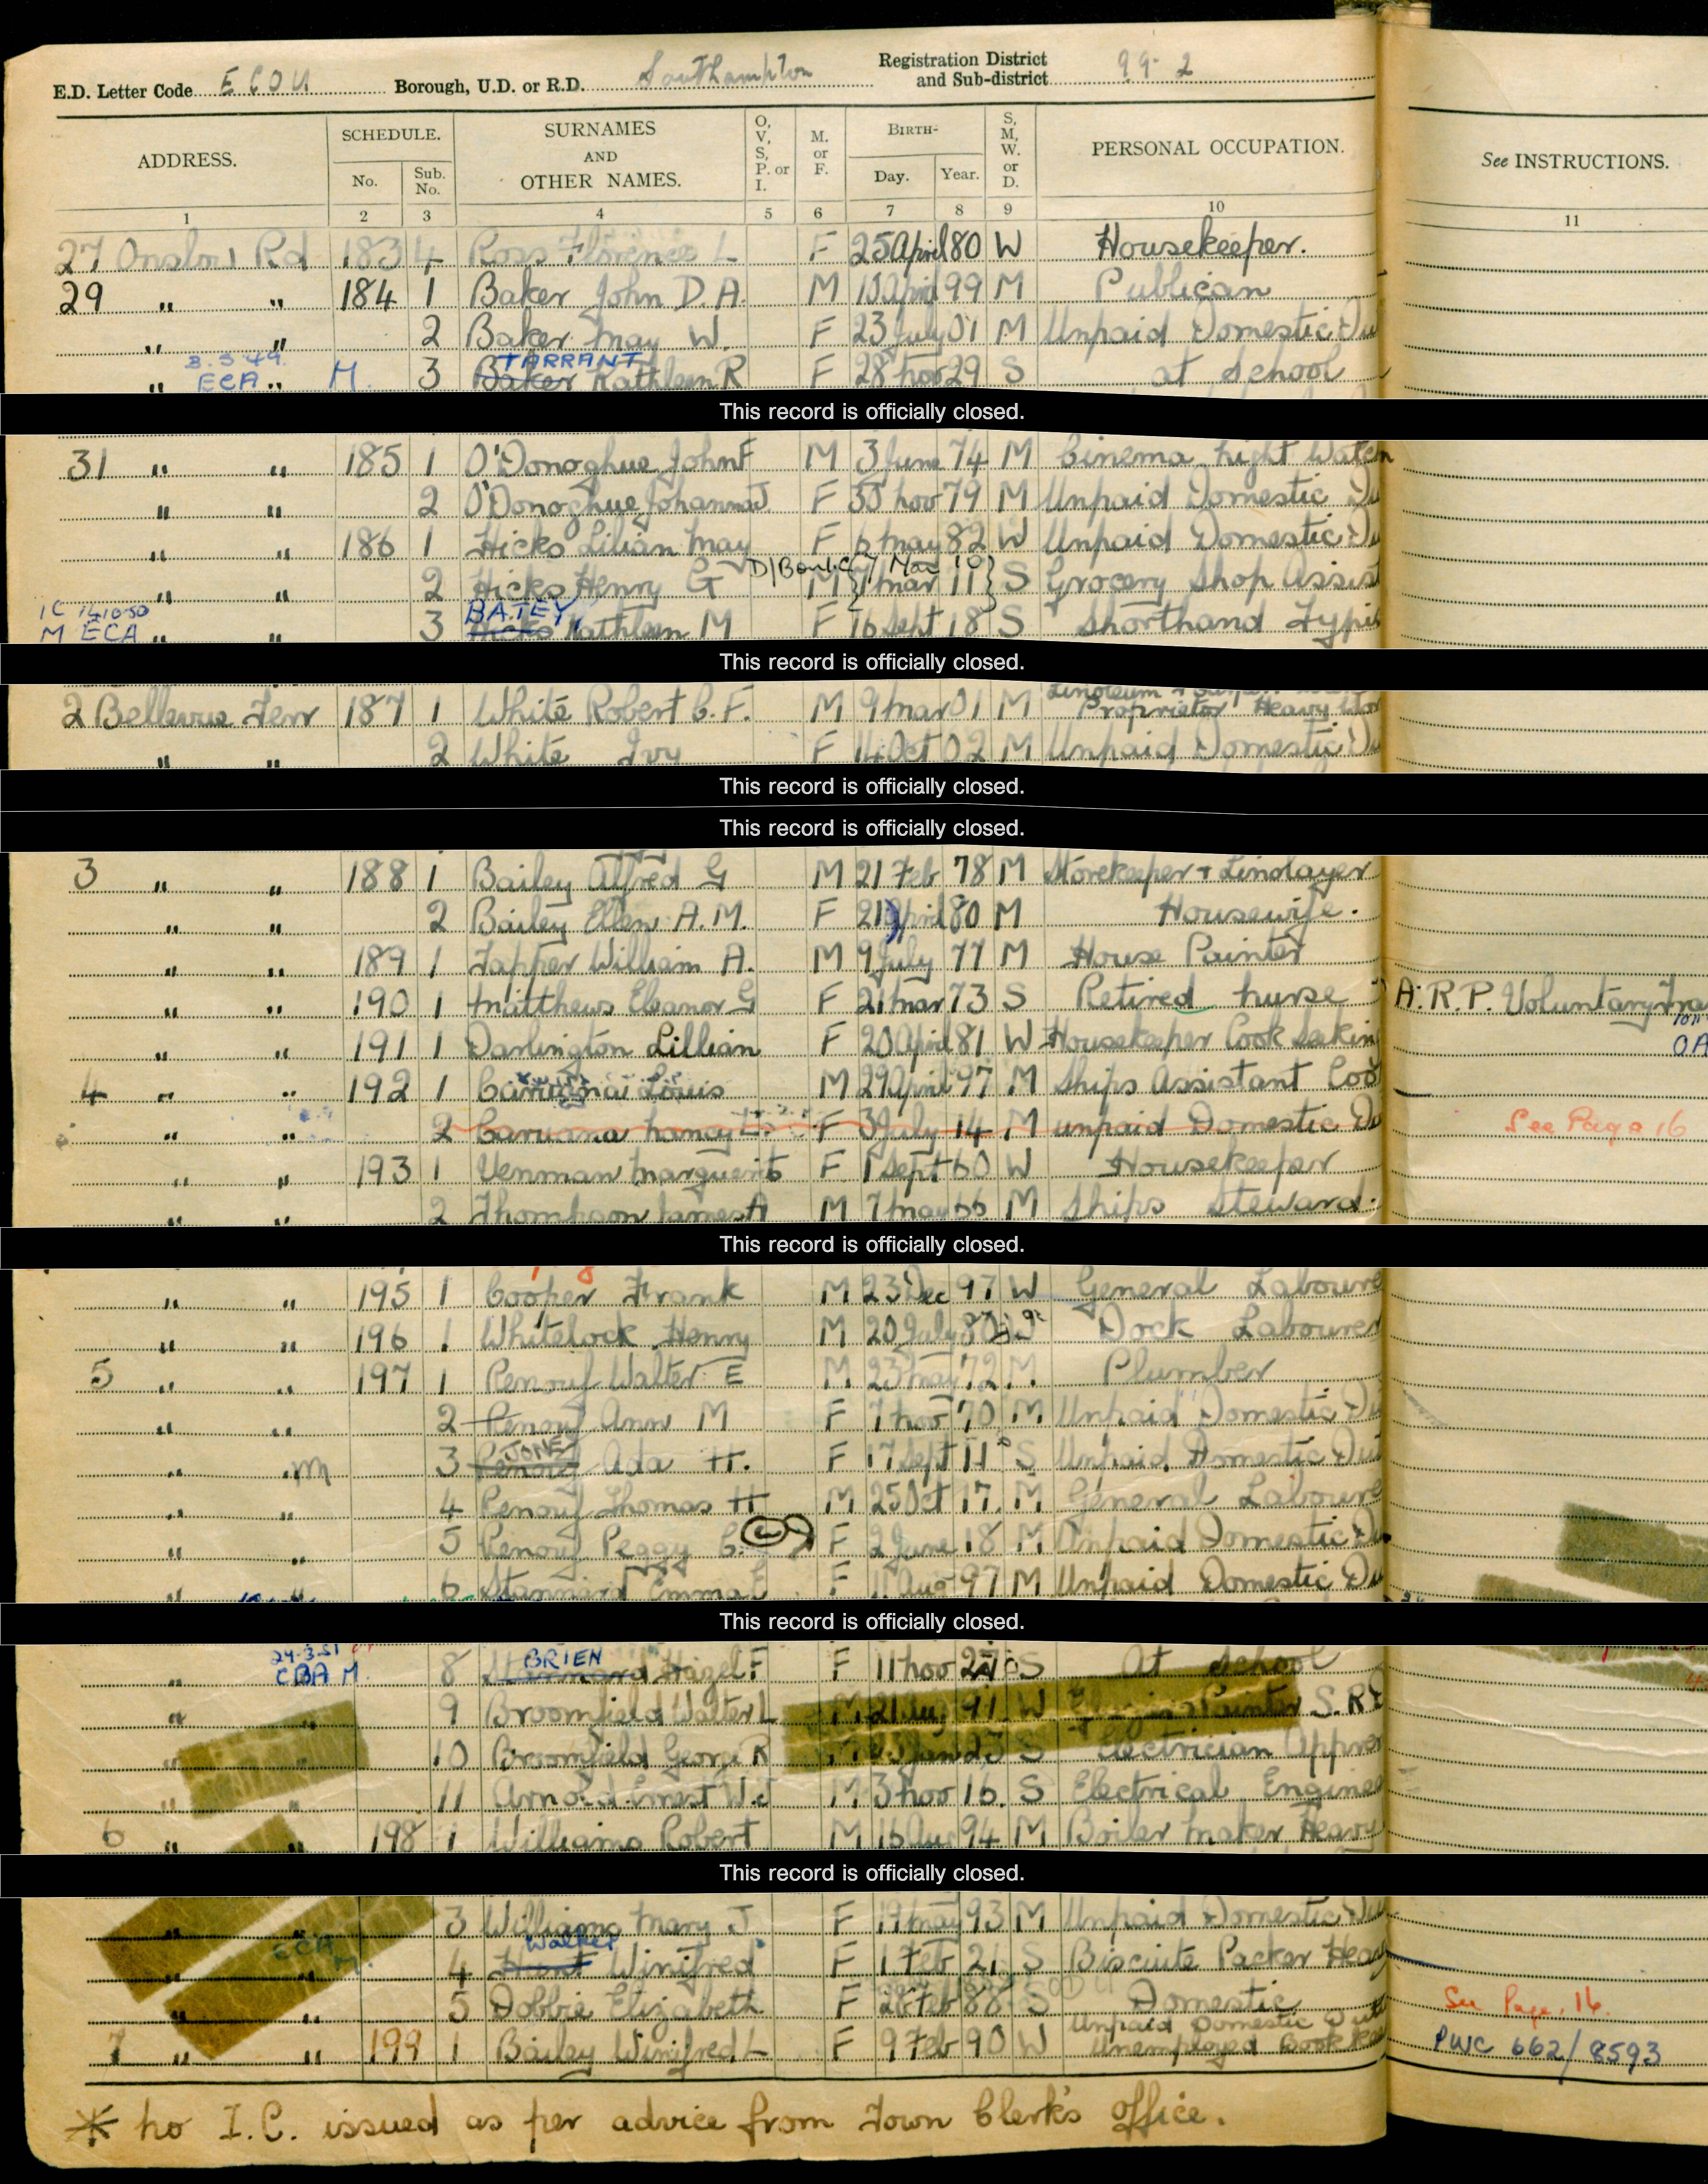 E.D. Letter Code ECOU Borough, U.D. or R.D. Southampton Registration District and Sub-district 99-2
ADDRESS. SCHEDULE. No. Sub. No. SURNAMES AND OTHER NAMES. O, V, S, P. or I. M. or F. BIRTH- Day. Year. S, M, W. or D. PERSONAL OCCUPATION. See INSTRUCTIONS.
1 2 3 4 5 6 7 8 9 10 11
27 Onslow Rd 183 4 Ross Florence L F 25 April 80 W Housekeeper.
29 " " 184 1 Baker John D. A. M 10 April 99 M Publican
" " 2 Baker May W. F 23 July 01 M Unpaid Domestic Du
3.3.49. TARRANT
" ECA " M. 3 Baker Kathleen R F 28 Nov 29 S at School
This record is officially closed.
31 " " 185 1 O'Donoghue John F M 3 June 74 M Cinema Night Watch
" " 2 O'Donoghue Johanna J. F 30 Nov 79 M Unpaid Domestic Du
" " 186 1 Hicks Lilian May F 6 May 82 W Unpaid Domestic Du
7 Mar 10
" " 2 Hicks Henry G M 1 Mar 11 S Grocery Shop Assist
1C 14.10.50 BATEY
M ECA " " 3 Hicks Kathleen M F 16 Sept 18 S Shorthand Typis
This record is officially closed.
2 Bellevue Terr 187 1 White Robert C. F. M 9 Mar 01 M Linoleum Proprietor Heavy Wor
" " 2 White Ivy F 14 Oct 02 M Unpaid Domestic Du
This record is officially closed.
This record is officially closed.
3 " " 188 1 Bailey Alfred G M 21 Feb 78 M Storekeeper + Linolayer
" " 2 Bailey Ellen A. M. F 21 April 80 M Housewife.
" " 189 1 Tapper William A. M 9 July 77 M House Painter
" " 190 1 Matthews Eleanor G F 21 Mar 73 S Retired Nurse A.R.P. Voluntary
" " 191 1 Darlington Lillian F 20 April 81 W Housekeeper Cook Seekin OA
4 " " 192 1 Caruana Louis M 29 April 97 M Ships Assistant Coo
" " 2 Caruana Nancy F 3 July 14 M unpaid Domestic Du See Page 16
" " 193 1 Venman Marguerite F 1 Sept 60 W Housekeeper
" " 2 Thompson James A M 7 May 66 M Ships Steward.
This record is officially closed.
" " 195 1 Cooper Frank M 23 Dec 97 W General Laboure
" " 196 1 Whitelock Henry M 20 July W Dock Labourer
5 " " 197 1 Renouf Walter E M 23 May 72 M. Plumber
" " 2 Renouf Ann M F 7 Nov 70 M Unpaid Domestic Du
JONES
" " M 3 Renouf Ada H. F 17 Sept 11 S Unpaid Domestic Dut
" " 4 Renouf Thomas H M 25 Oct 17. M General Laboure
" " 5 Renouf Peggy C. F 2 June 18 M Unpaid Domestic Du
" " 6 Stannard Emma E F 11 Aug 97 M Unpaid Domestic Du
This record is officially closed.
24-3-51 BRIEN
" CBA M. 8 Stannard Hazel F F 11 Nov S At School
" " 9 Broomfield Walter L M 21 91 W Painter S.R.
" " 10 Broomfield George R M Jan S Electrician Appren
" " 11 Arnold Ernest W. J M 3 Nov 16. S Electrical Enginee
6 " " 198 1 Williams Robert M 16 Aug 94 M Boiler Maker Heavy
This record is officially closed.
" " 3 Williams Mary J F 19 May 93 M Unpaid Domestic Du
Walker
" ECA M. " 4 Hunt Winifred F 1 Feb 21 S Biscuite Packer Heav
" " 5 Dobbie Elizabeth F 28 Feb 88 S Domestic See Page. 16.
7 " " 199 1 Bailey Winifred L F 9 Feb 90 W Unpaid Domestic Duti Unemployed Book Kee PWC 662/8593
* No I.C. issued as per advice from Town Clerk's office.